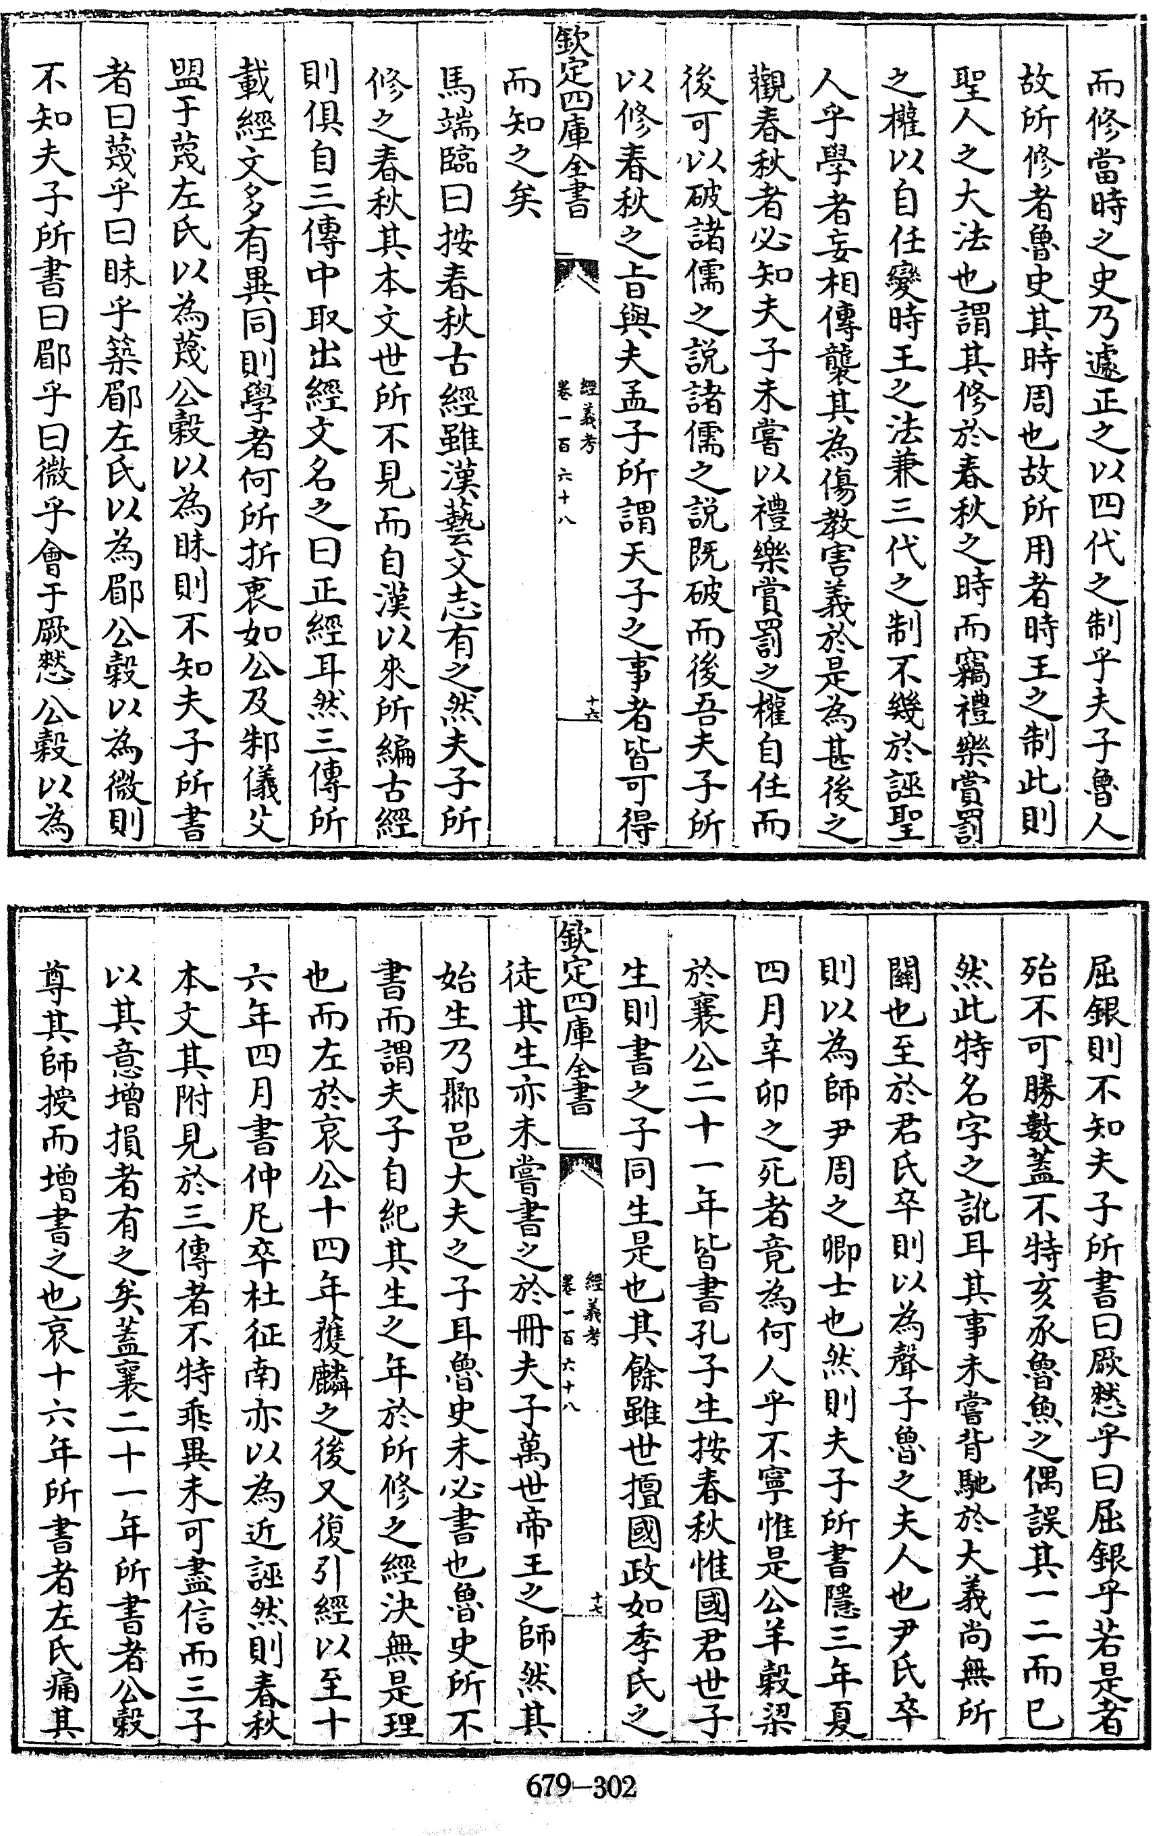 而修當時之史乃遽正之以四代之制乎夫子魯人
故所修者魯史其時周也故所用者時王之制此則
聖人之大法也謂其修於春秋之時而竊禮樂賞罰
之權以自任變時王之法兼三代之制不幾於誣聖
人乎學者妄相傳襲其為傷教害義於是為甚後之
觀春秋者必知夫子未嘗以禮樂賞罰之權自任而
後可以破諸儒之說諸儒之說既破而後吾夫子所
以修春秋之㫖與夫孟子所謂天子之事者皆可得
欽定四庫全書
經義考
卷一百六十八
十六
而知之矣
馬端臨曰按春秋古經雖漢藝文志有之然夫子所
修之春秋其本文世所不見而自漢以來所編古經
則俱自三傳中取出經文名之曰正經耳然三傳所
載經文多有異同則學者何所折衷如公及邾儀父
盟于蔑左氏以為蔑公穀以為眛則不知夫子所書
者曰蔑乎曰眛乎築郿左氏以為郿公穀以為微則
不知夫子所書曰郿乎曰微乎會于厥憖公穀以為
屈銀則不知夫子所書曰厥憖乎曰屈銀乎若是者
殆不可勝數蓋不特亥豕魯魚之偶誤其一二而已
然此特名字之訛耳其事未嘗背馳於大義尚無所
關也至於君氏卒則以為聲子魯之夫人也尹氏卒
則以為師尹周之卿士也然則夫子所書隱三年夏
四月辛卯之死者竟為何人乎不寧惟是公羊穀梁
於襄公二十一年皆書孔子生按春秋惟國君世子
生則書之子同生是也其餘雖世擅國政如季氏之
欽定四庫全書
經義考
卷一百六十八
十七
徒其生亦未嘗書之於冊夫子萬世帝王之師然其
始生乃鄹邑大夫之子耳魯史未必書也魯史所不
書而謂夫子自紀其生之年於所修之經決無是理
也而左於哀公十四年獲麟之後又復引經以至十
六年四月書仲尼卒杜征南亦以為近誣然則春秋
本文其附見於三傳者不特乖異未可盡信而三子
以其意增損者有之矣蓋襄二十一年所書者公穀
尊其師授而增書之也哀十六年所書者左氏痛其
679—302